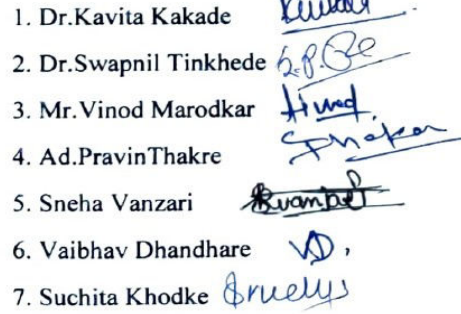 1. Dr.Kavita Kakade
2. Dr.Swapnil Tinkhede
3. Mr.Vinod Marodkar
4. Ad.PravinThakre
5. Sneha Vanzari
6. Vaibhav Dhandhare VD.
7. Suchita Khodke